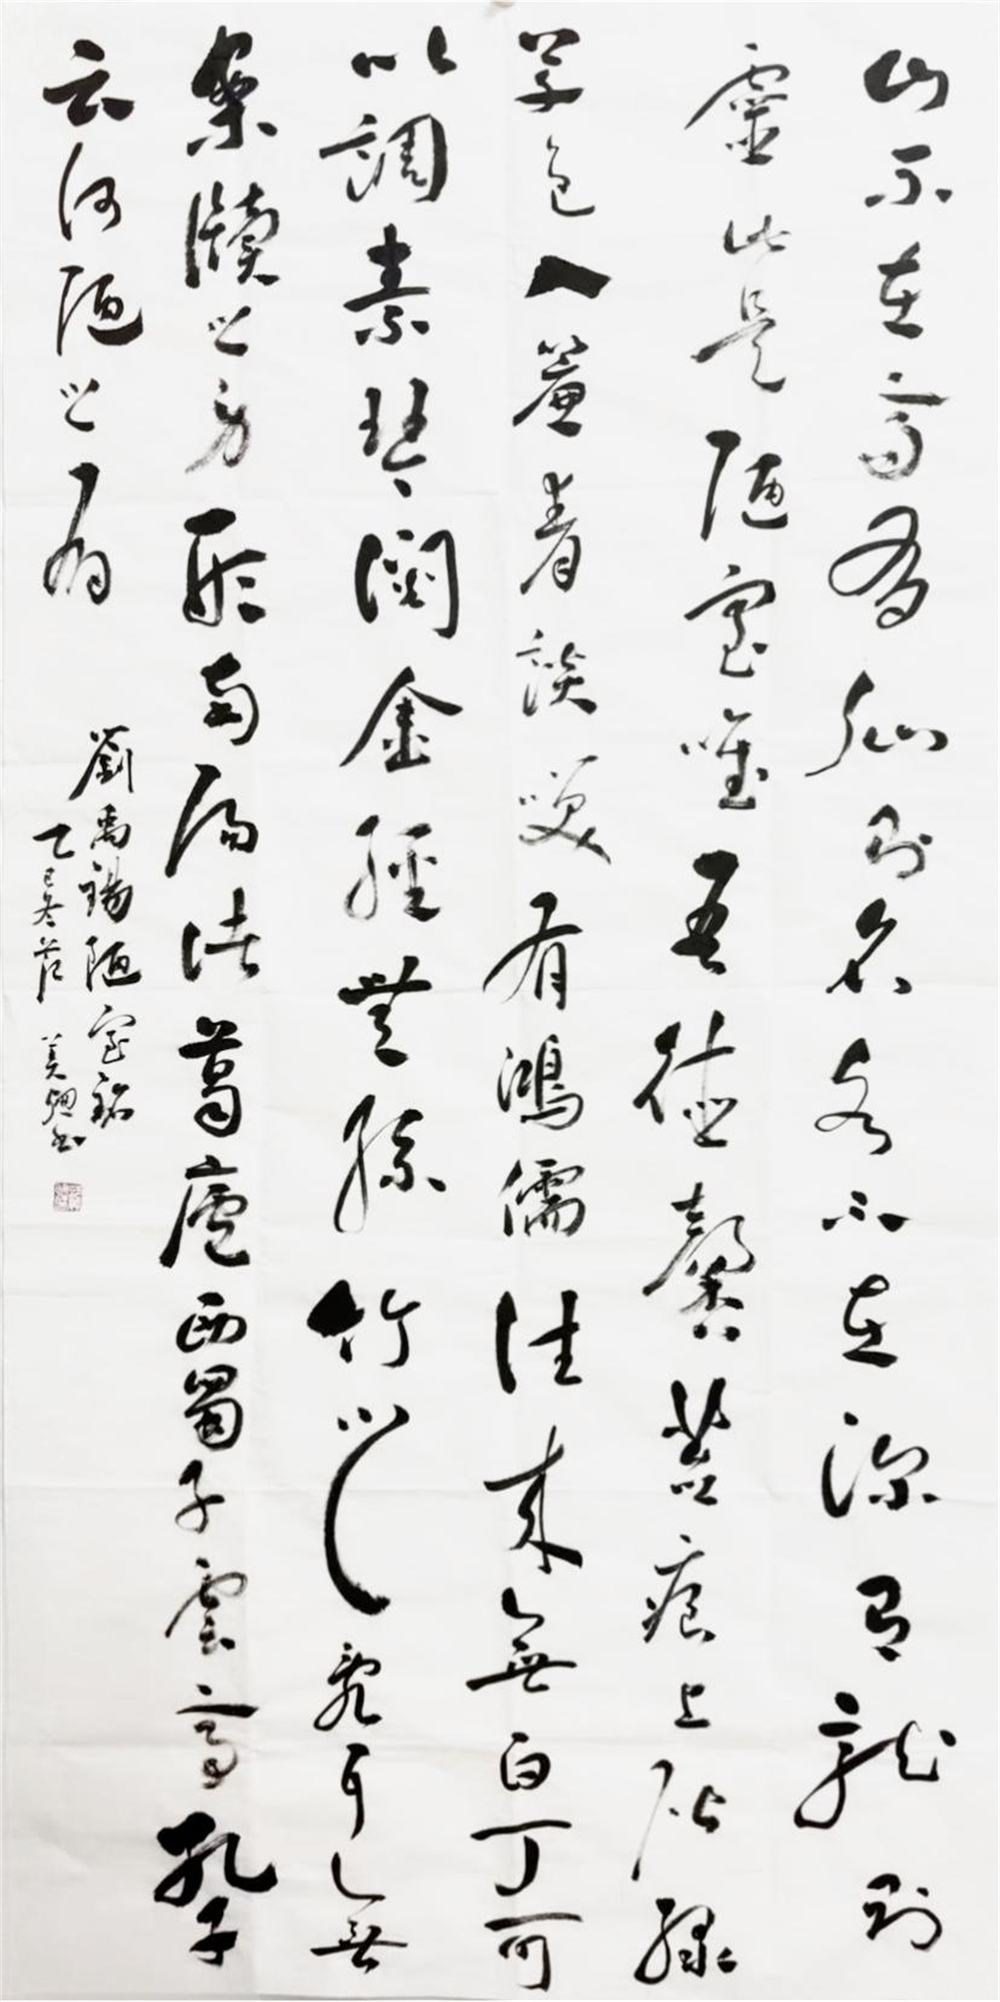 山不在高有仙則名水不在深有龍則
靈此是陋室唯吾德馨苔痕上階綠
草色入簾青談咲有鴻儒往來無白丁可
以調素琴閱金經無絲竹之亂耳無
案牘之勞形南陽諸葛廬西蜀子雲亭孔子
云何陋之有
劉禹錫陋室銘
乙巳冬 美 书